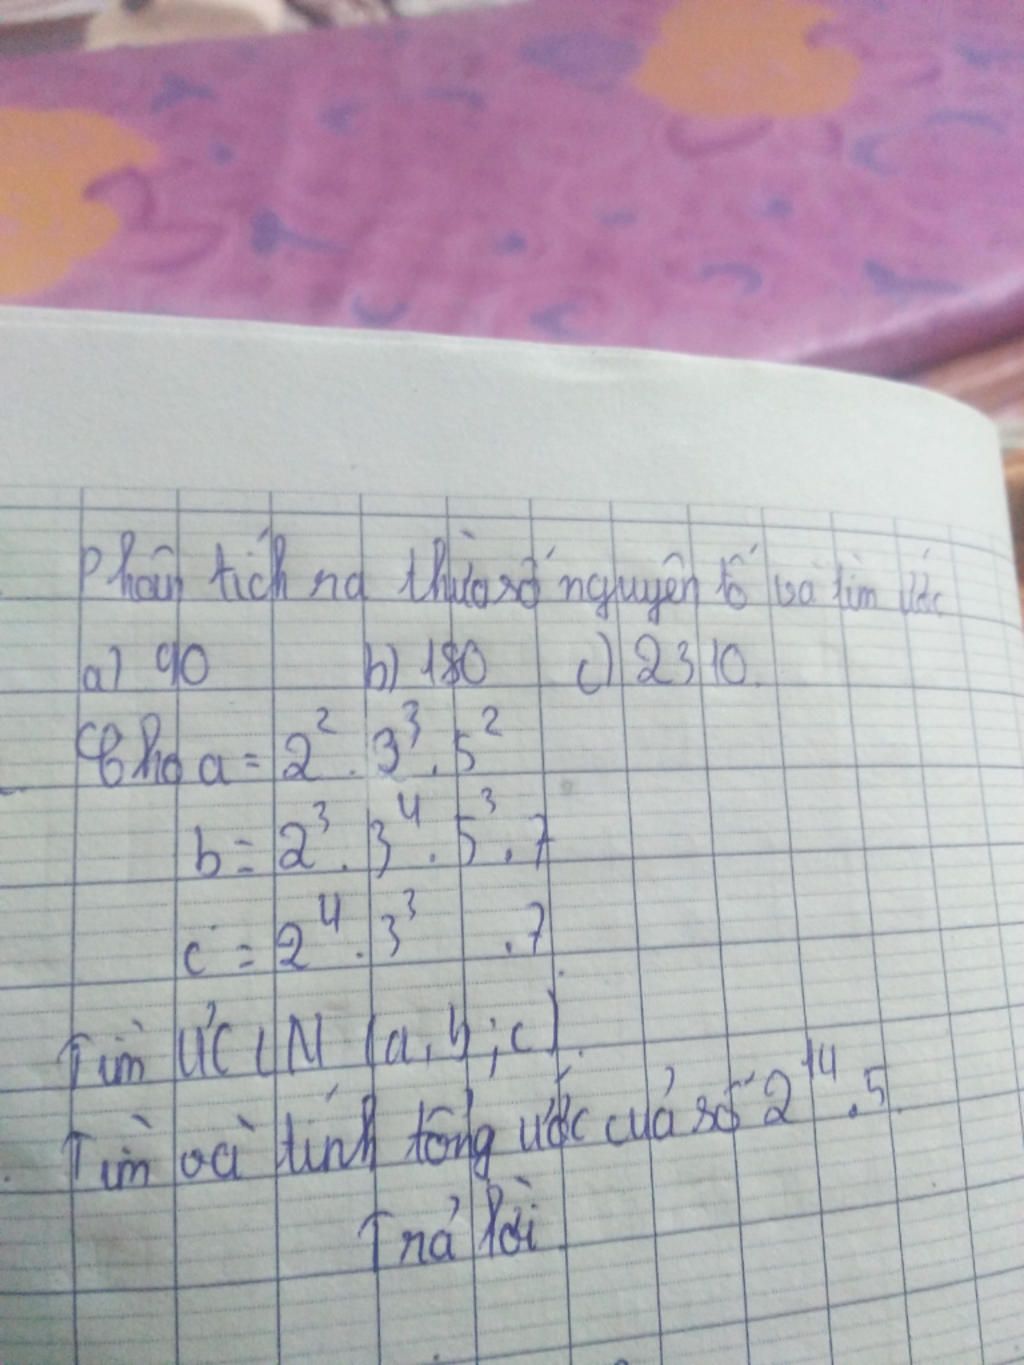 Phân tích ra thừa số nguyên tố và tìm ước
a) 90 b) 180 c) 2310.
Cho a = 2² . 3³ . 5²
b = 2³ . 3⁴ . 5³ . 7
c = 2⁴ . 3³ . 7
Tìm ƯCLN (a, b; c).
Tìm và tính tổng ước của số 2¹⁴ . 5.
Trả lời